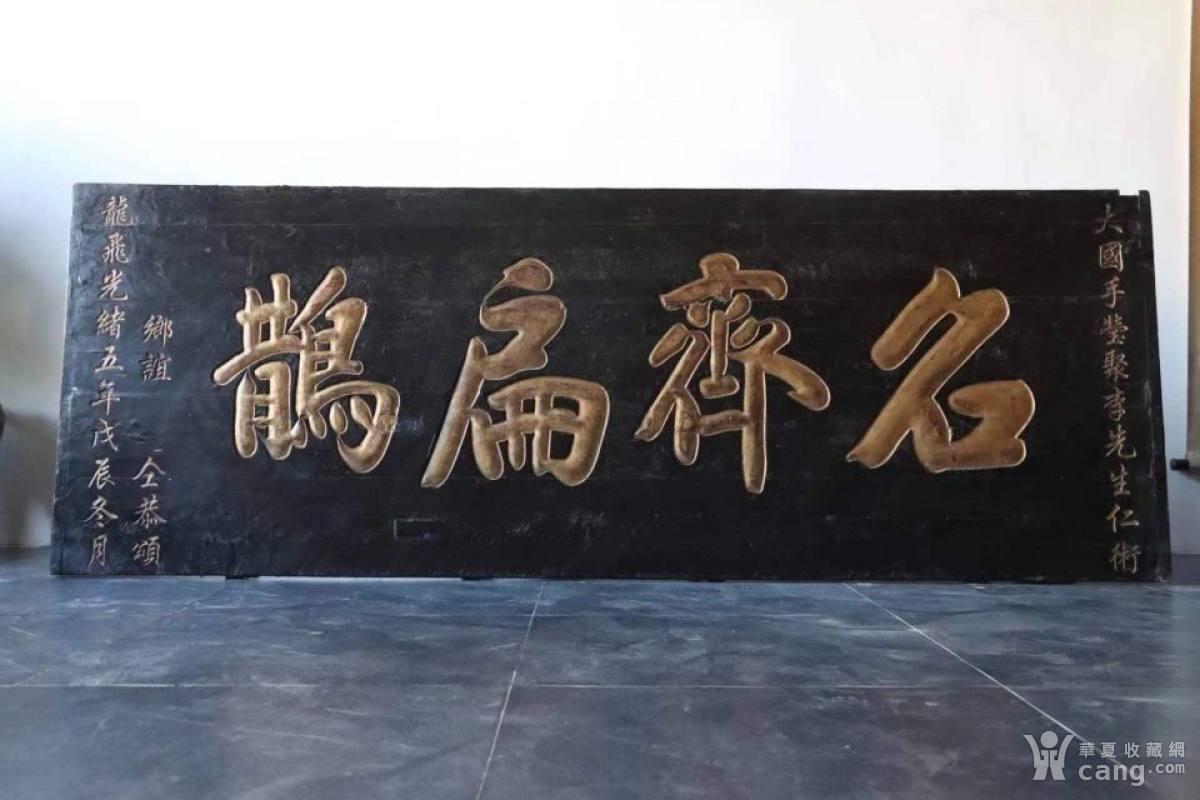 大國手瑩聚李先生仁術
名齊扁鵲
鄉誼 仝恭頌
龍飛光緒五年戊辰冬月
華夏收藏網
cang.com